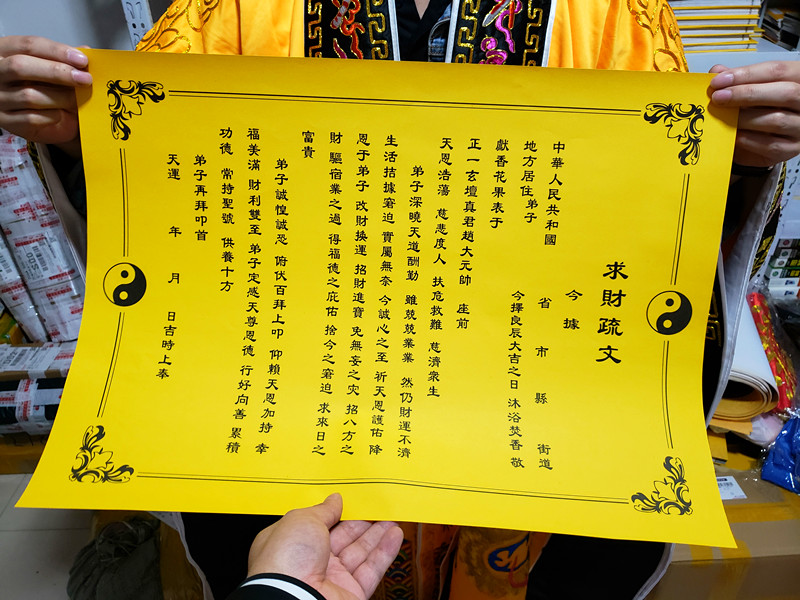 求財疏文
今據
中華人民共和國 省 市 縣 街道
地方居住弟子 今擇良辰大吉之日 沐浴焚香 敬
獻香花果表于
正一玄壇真君趙大元帥 座前
天恩浩蕩 慈悲度人 扶危救難 慈濟衆生
弟子深曉天道酬勤 雖兢兢業業 然仍財運不濟
生活拮據窘迫 實屬無奈 今誠心之至 祈天恩護佑 降
恩于弟子 改財換運 招財進寶 免無妄之灾 招八方之
財 驅宿業之過 得福德之庇佑 捨今之窘迫 求來日之
富貴
弟子誠惶誠恐 俯伏百拜上叩 仰賴天恩加持 幸
福美滿 財利雙至 弟子定感天尊恩德 行好向善 累積
功德 常持聖號 供養十方
弟子再拜叩首
天運 年 月 日吉時上奉